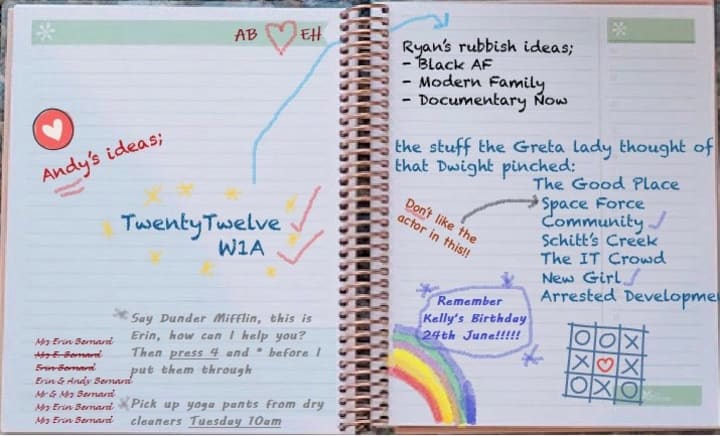 AB EH
Andy's ideas;
TwentyTwelve
W1A
Say Dunder Mifflin, this is
Erin, how can I help you?
Then press 4 and * before I
put them through
Pick up yoga pants from dry
cleaners Tuesday 10am
Mrs Erin Bernard
Mrs E. Bernard
Erin Bernard
Erin & Andy Bernard
Mr & Mrs Bernard
Mrs Erin Bernard
Mrs Erin Bernard
Ryan's rubbish ideas;
- Black AF
- Modern Family
- Documentary Now
the stuff the Greta lady thought of
that Dwight pinched:
The Good Place
Space Force
Community
Schitt's Creek
The IT Crowd
New Girl
Arrested Developme
Don't like the
actor in this!!
Remember
Kelly's Birthday
24th June!!!!!
O O X
X X
O X O